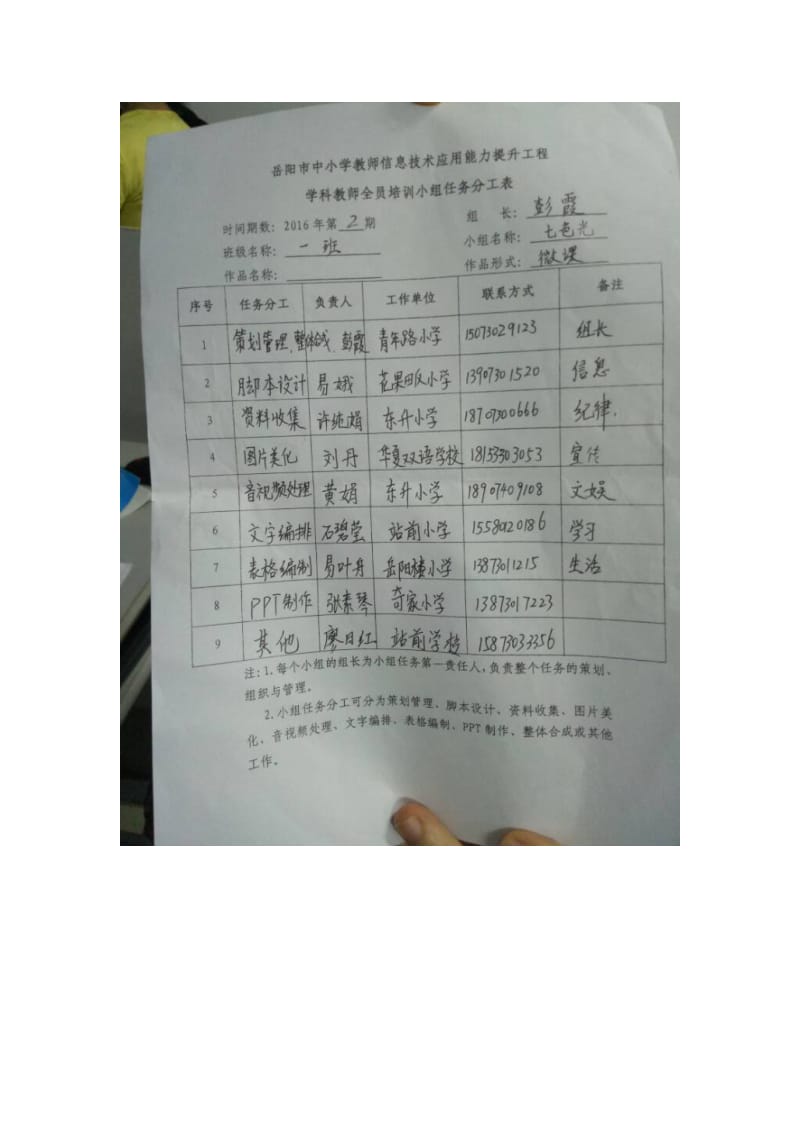 岳阳市中小学教师信息技术应用能力提升工程
学科教师全员培训小组任务分工表
时间期数：2016年第2期 组 长：彭霞
班级名称：一班 小组名称：七色光
作品名称： 作品形式：微课
序号 任务分工 负责人 工作单位 联系方式 备注
1 策划管理、整体合成、彭霞 青年路小学 15073029123 组长
2 脚本设计 易娥 花果畈小学 13907301520 信息
3 资料收集 许纯娟 东升小学 18707300666 纪律.
4 图片美化 刘丹 华夏双语学校 18153303053 宣传
5 音视频处理 黄娟 东升小学 18907409108 文娱
6 文字编排 石碧莹 站前小学 15580120186 学习
7 表格编制 易叶丹 岳阳楼小学 13873011215 生活
8 PPT制作 张素琴 奇家小学 13873017223
9 其他 廖日红 站前学校 15873033356
注：1.每个小组的组长为小组任务第一责任人，负责整个任务的策划、
组织与管理。
2.小组任务分工可分为策划管理、脚本设计、资料收集、图片美
化、音视频处理、文字编排、表格编制、PPT制作、整体合成或其他
工作。